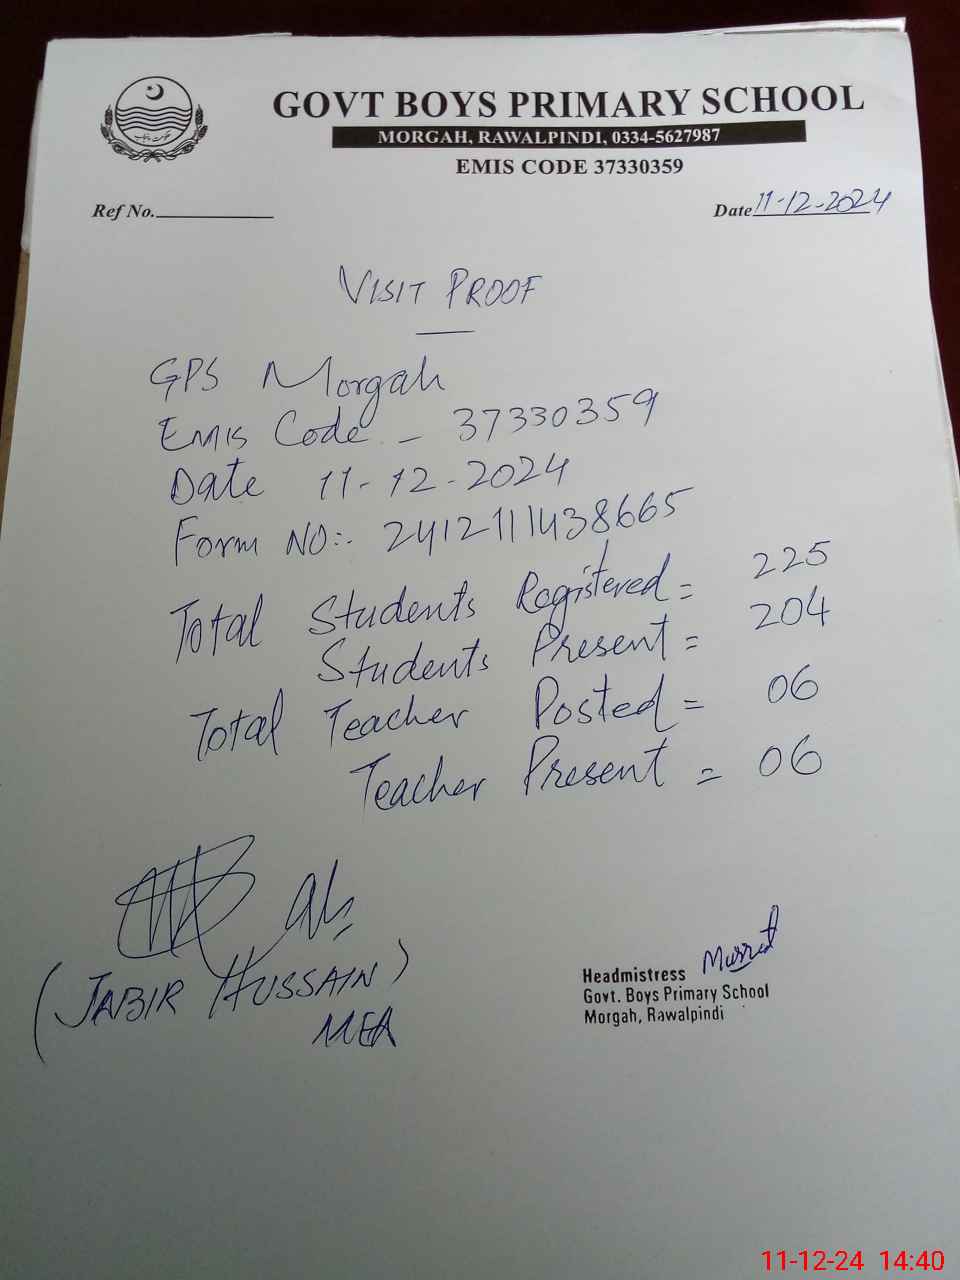 GOVT BOYS PRIMARY SCHOOL
MORGAH, RAWALPINDI, 0334-5627987
EMIS CODE 37330359
Ref No.
Date 11-12-2024
VISIT PROOF
GPS Morgah
EMIS Code - 37330359
Date 11-12-2024
Form NO:- 2412111438665
Total Students Registered = 225
Students Present = 204
Total Teacher Posted = 06
Teacher Present = 06
(JABIR HUSSAIN)
MEA
Headmistress
Govt. Boys Primary School
Morgah, Rawalpindi
11-12-24 14:40